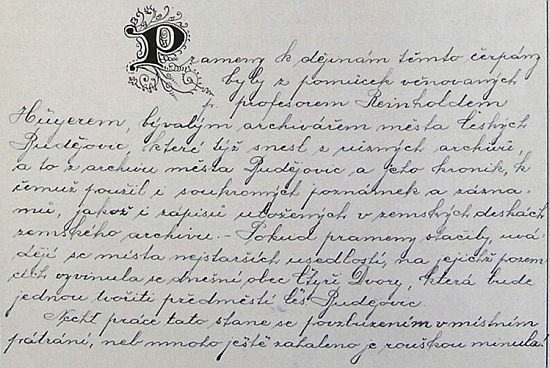 Prameny k dějinám těmto čerpány
byly z pomůcek věnovaných
p. profesorem Reinholdem
Hüyerem, bývalým archivářem města Českých
Budějovic, které týž snesl z různých archivů,
a to z archivu města Budějovic a jeho kronik, k
čemuž použil i soukromých poznámek a zázna-
mů, jakož i zápisů uložených v zemských deskách
zemského archivu. – Pokud prameny stačily, uvá-
dějí se místa nejstarších usedlostí, na jejichž pozem-
cích vyvinula se dnešní obec Čtyři Dvory, která bude
jednou tvořiti předměstí Čes. Budějovic.
Nechť práce tato stane se povzbuzením v místním
pátrání, neb mnoho ještě zahaleno je rouškou minula!